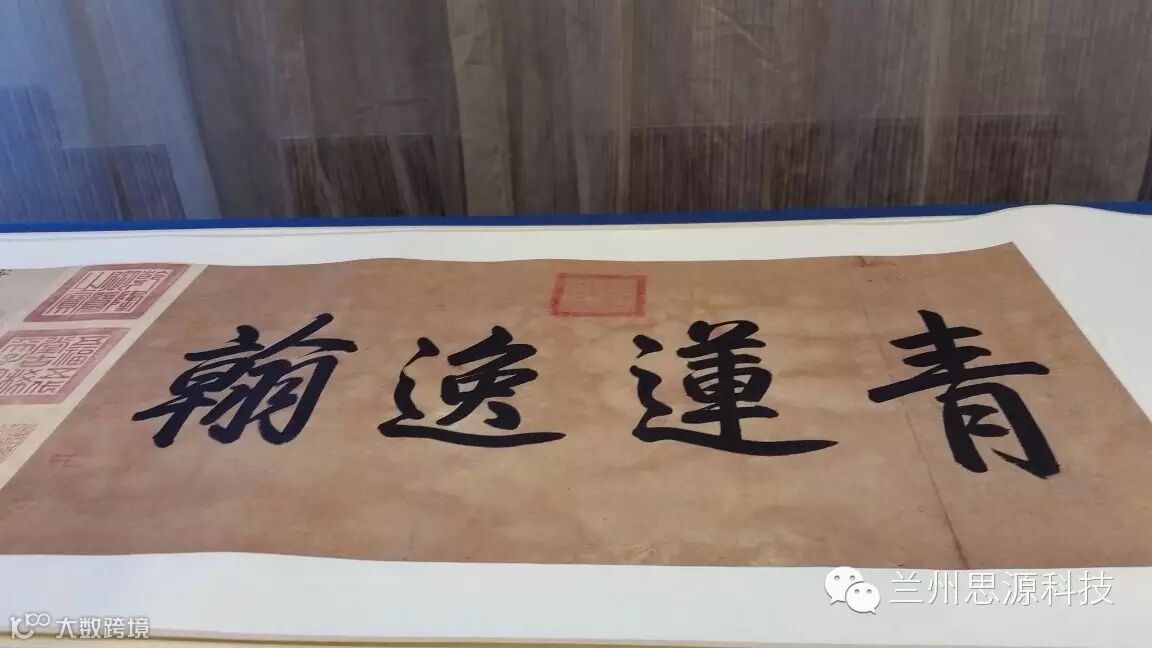 青蓮逸翰
兰州思源科技
大数跨境